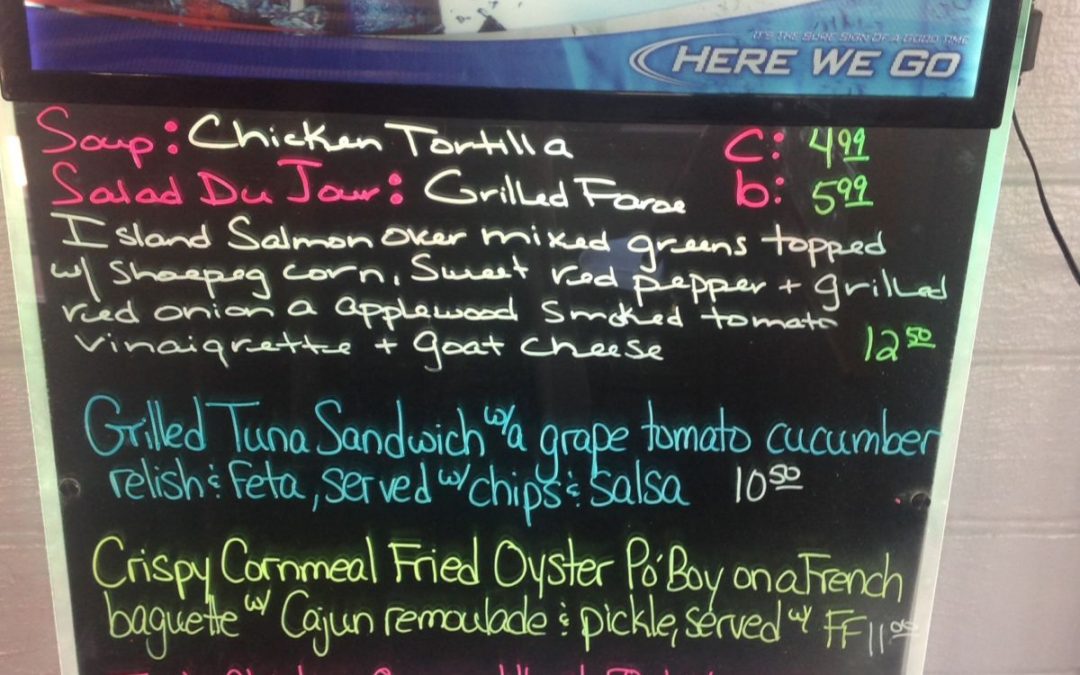 IT'S THE SURE SIGN OF A GOOD TIME
HERE WE GO
Soup: Chicken Tortilla C: 4.99
Salad Du Jour: Grilled Faroe b: 5.99
Island Salmon over mixed greens topped
w/ Shoepeg corn, Sweet red pepper + grilled
red onion a applewood smoked tomato
vinaigrette + goat cheese 12.50
Grilled Tuna Sandwich w/ a grape tomato cucumber
relish & Feta, served w/ chips & salsa 10.50
Crispy Cornmeal Fried Oyster Po'Boy on a French
baguette w/ Cajun remoulade & pickle, served w/ FF 11.00